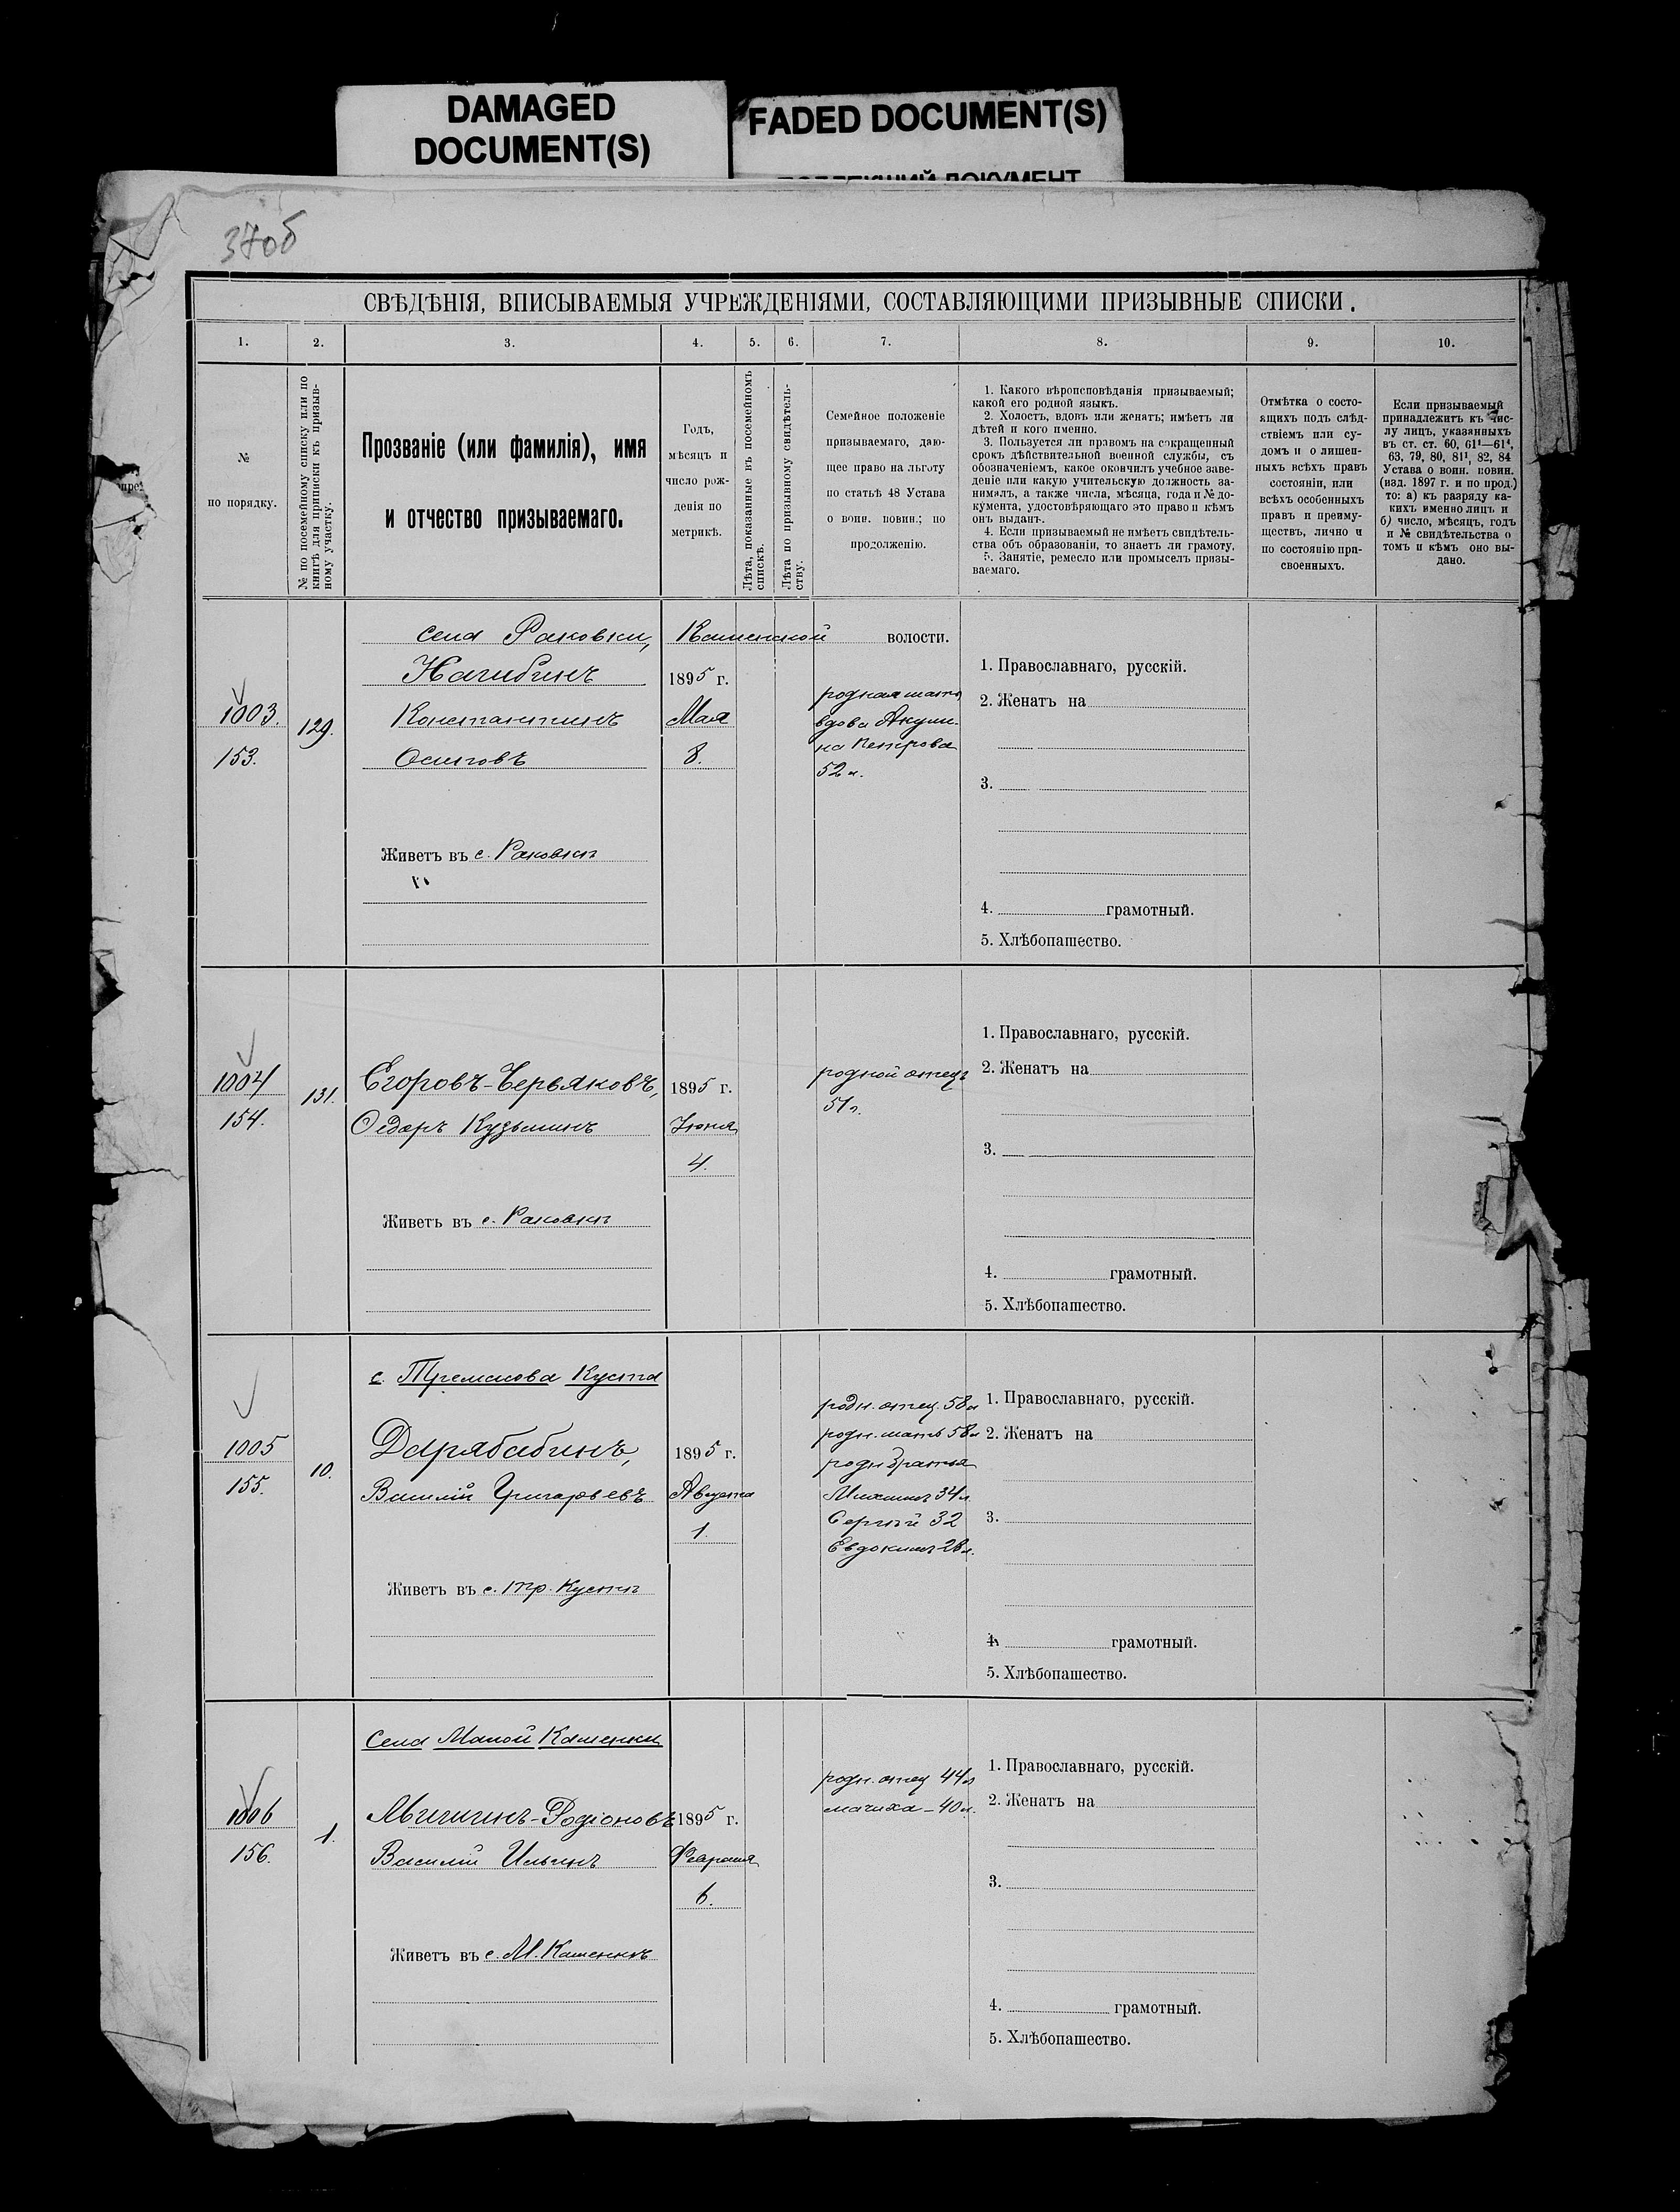 DAMAGED
DOCUMENT(S)
FADED DOCUMENT(S)
ДОКУМЕНТ
37об
СВѢДѢНІЯ, ВПИСЫВАЕМЫЯ УЧРЕЖДЕНІЯМИ, СОСТАВЛЯЮЩИМИ ПРИЗЫВНЫЕ СПИСКИ.
1. 2. 3. 4. 5. 6. 7. 8. 9. 10.
№
по порядку.
№ по посемейному списку или по
книгѣ для приписки къ призыв-
ному участку.
Прозваніе (или фамилія), имя
и отчество призываемаго.
Годъ,
мѣсяцъ и
число рож-
денія по
метрикѣ.
Лѣта, показанные въ посемейномъ
спискѣ.
Лѣта по призывному свидѣтель-
ству.
Семейное положеніе
призываемаго, даю-
щее право на льготу
по статьѣ 48 Устава
о воин. повин.; по
продолженію.
1. Какого вѣроисповѣданія призываемый;
какой его родной языкъ.
2. Холостъ, вдовъ или женатъ; имѣетъ ли
дѣтей и кого именно.
3. Пользуется ли правомъ на сокращенный
срокъ дѣйствительной военной службы, съ
обозначеніемъ, какое окончилъ учебное заве-
деніе или какую учительскую должность за-
нималъ, а также числа, мѣсяца, года и № до-
кумента, удостовѣряющаго это право и кѣмъ
онъ выданъ.
4. Если призываемый не имѣетъ свидѣтель-
ства объ образованіи, то знаетъ ли грамоту.
5. Занятіе, ремесло или промыселъ призы-
ваемаго.
Отмѣтка о состо-
ящихъ подъ слѣд-
ствіемъ или су-
домъ и о лишен-
ныхъ всѣхъ правъ
состоянія, или
всѣхъ особенныхъ
правъ и преиму-
ществъ, лично и
по состоянію при-
своенныхъ.
Если призываемый
принадлежитъ къ чис-
лу лицъ, указанныхъ
въ ст. ст. 60, 61¹—61⁴,
63, 79, 80, 81¹, 82, 84
Устава о воин. повин.
(изд. 1897 г. и по прод.)
то: а) къ разряду ка-
кихъ именно лицъ и
б) число, мѣсяцъ, годъ
и № свидѣтельства о
томъ и кѣмъ оно вы-
дано.
села Раковки, Каменской волости.
1003.
153.
129.
Нагибинъ
Константинъ
Осиповъ
Живетъ въ с. Раковкѣ
1895 г.
Мая
8.
родная мать
вдова Акули-
на Петрова
52 л.
1. Православнаго, русскій.
2. Женатъ на
3.
4. грамотный.
5. Хлѣбопашество.
1004
154.
131.
Егоровъ-Червяковъ,
Ѳедоръ Кузьминъ
Живетъ въ с. Раковкѣ
1895 г.
Іюня
4.
родной отецъ
51 л.
1. Православнаго, русскій.
2. Женатъ на
3.
4. грамотный.
5. Хлѣбопашество.
с. Тремасова Куста
1005
155.
10.
Дарябабинъ,
Василій Григорьевъ
Живетъ въ с. Тр. Кустѣ
1895 г.
Августа
1.
родн. отец. 58 л
родн. мать 58 л
родн братья
Михаилъ 34 л.
Сергѣй 32
Евдокимъ 28 л.
1. Православнаго, русскій.
2. Женатъ на
3.
4. грамотный.
5. Хлѣбопашество.
Села Малой Каменки
1006
156.
1.
-Родіоновъ
Василій Ильинъ
Живетъ въ с. М. Каменкѣ
1895 г.
Февраля
6.
родн. отец 44 л
мачиха - 40 л.
1. Православнаго, русскій.
2. Женатъ на
3.
4. грамотный.
5. Хлѣбопашество.